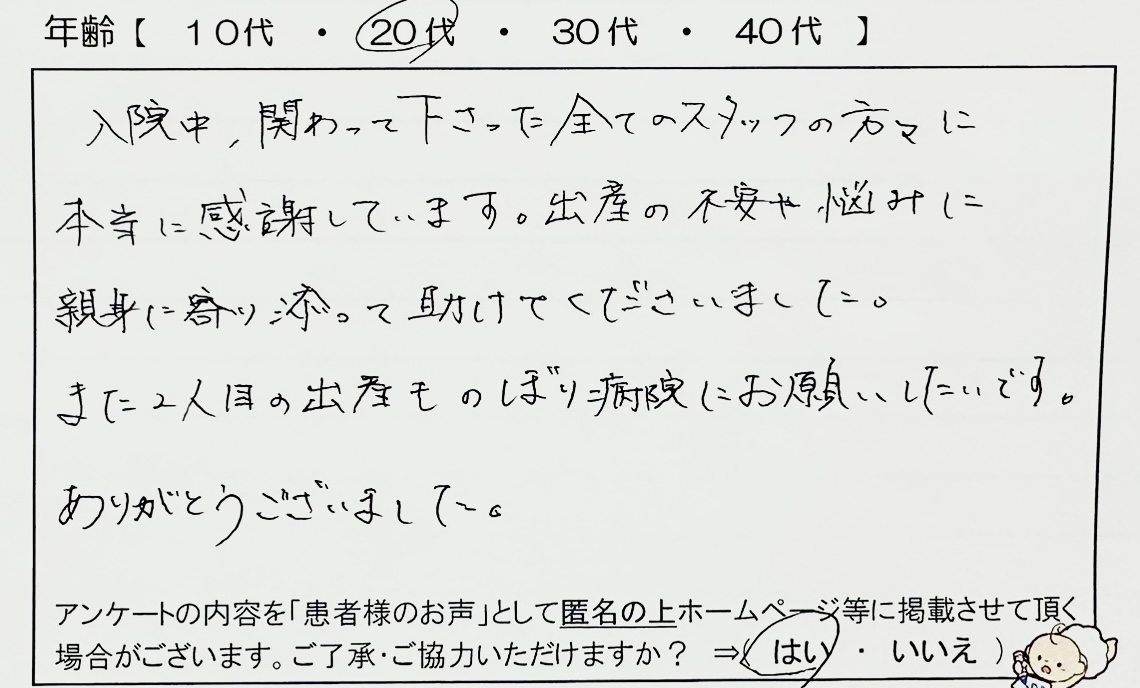 年齢【 10代 ・ 20代 ・ 30代 ・ 40代 】
入院中、関わって下さった全てのスタッフの方々に
本当に感謝しています。出産の不安や悩みに
親身に寄り添って助けてくださいました。
また2人目の出産ものぼり病院にお願いしたいです。
ありがとうございました。
アンケートの内容を「患者様のお声」として匿名の上ホームページ等に掲載させて頂く
場合がございます。ご了承・ご協力いただけますか？ ⇒( はい ・ いいえ )